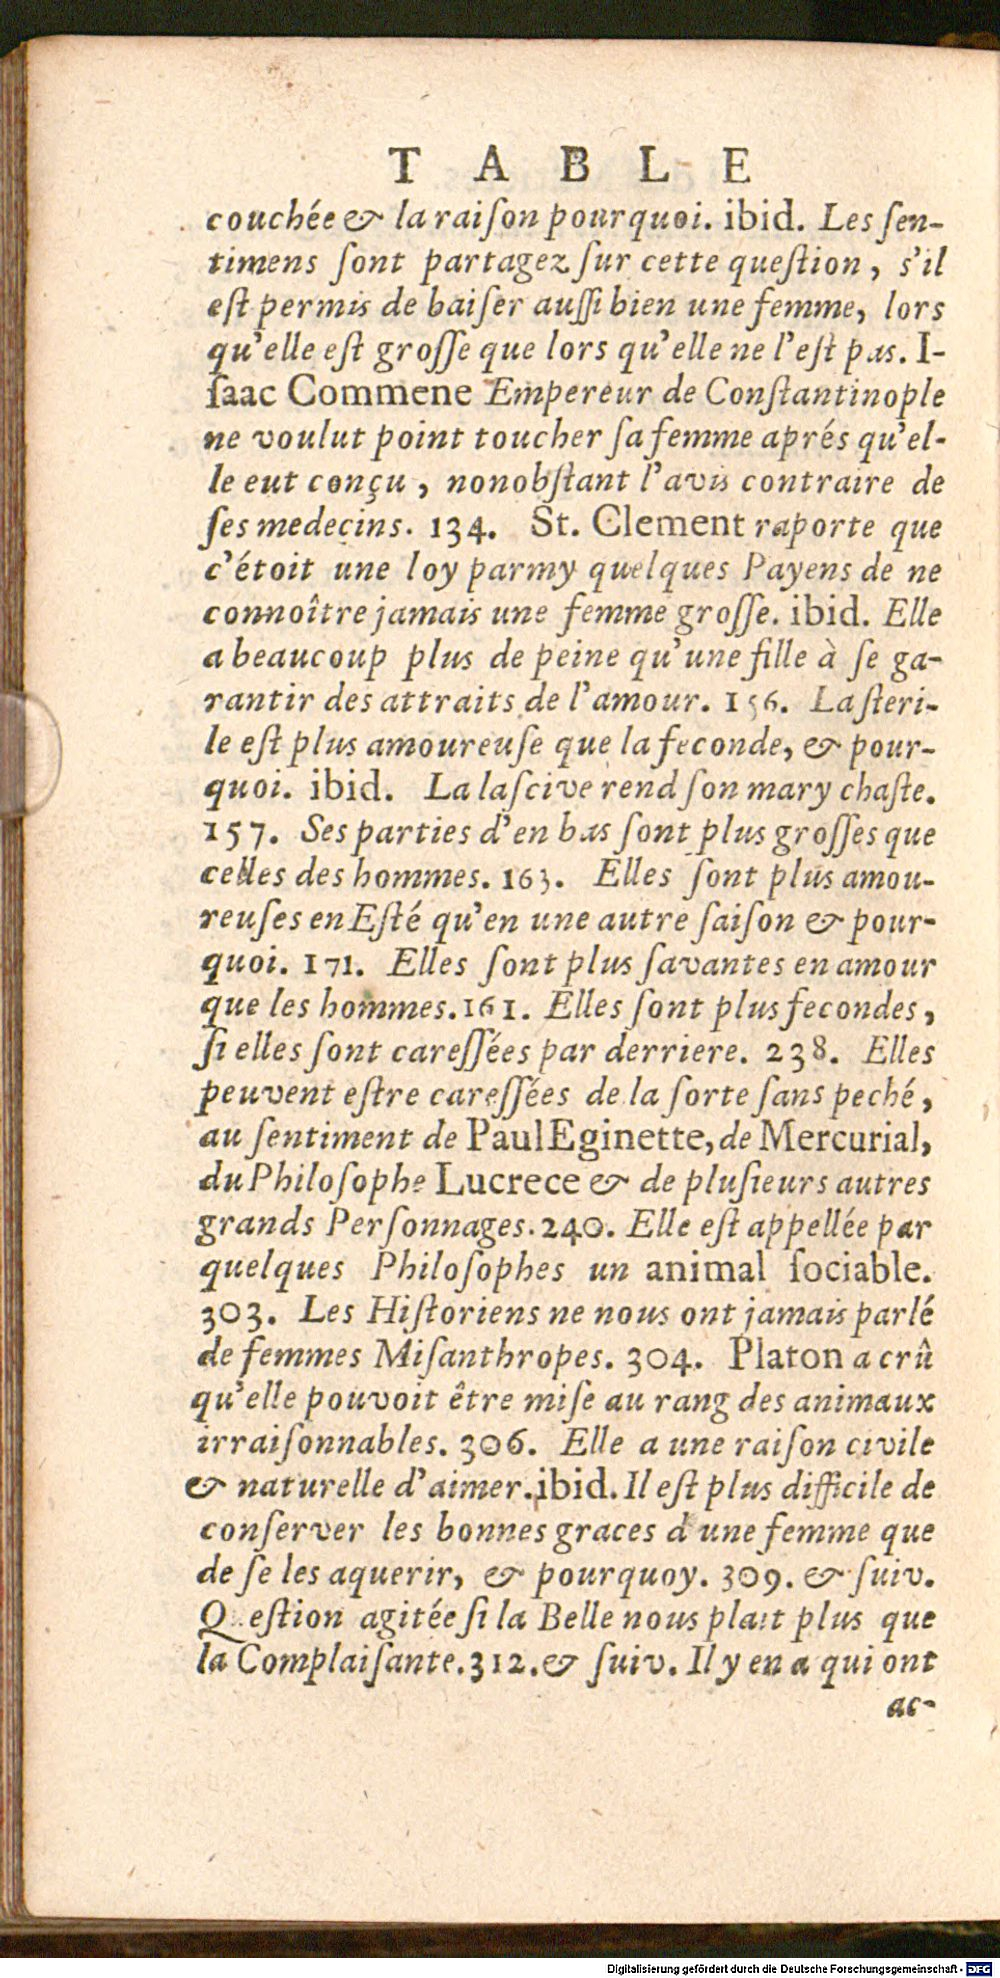 TABLE
couchée & la raiſon pourquoi. ibid. Les ſen-
timens ſont partagez ſur cette queſtion, s'il
eſt permis de baiſer auſſi bien une femme, lors
qu'elle eſt groſſe que lors qu'elle ne l'eſt pas. I-
ſaac Commene Empereur de Conſtantinople
ne voulut point toucher ſa femme aprés qu'el-
le eut conçu, nonobſtant l'avis contraire de
ſes medecins. 134. St. Clement raporte que
c'étoit une loy parmy quelques Payens de ne
connoître jamais une femme groſſe. ibid. Elle
a beaucoup plus de peine qu'une fille à ſe ga-
rantir des attraits de l'amour. 156. La ſteri-
le eſt plus amoureuſe que la feconde, & pour-
quoi. ibid. La laſcive rend ſon mary chaſte.
157. Ses parties d'en bas ſont plus groſſes que
celles des hommes. 163. Elles ſont plus amou-
reuſes en Eſté qu'en une autre ſaiſon & pour-
quoi. 171. Elles ſont plus ſavantes en amour
que les hommes. 161. Elles ſont plus fecondes,
ſi elles ſont careſſées par derriere. 238. Elles
peuvent eſtre careſſées de la ſorte ſans peché,
au ſentiment de Paul Eginette, de Mercurial,
du Philoſophe Lucrece & de pluſieurs autres
grands Perſonnages. 240. Elle eſt appellée par
quelques Philoſophes un animal ſociable.
303. Les Hiſtoriens ne nous ont jamais parlé
de femmes Miſanthropes. 304. Platon a crû
qu'elle pouvoit être miſe au rang des animaux
irraiſonnables. 306. Elle a une raiſon civile
& naturelle d'aimer. ibid. Il eſt plus difficile de
conſerver les bonnes graces d'une femme que
de ſe les aquerir, & pourquoy. 309. & ſuiv.
Queſtion agitée ſi la Belle nous plait plus que
la Complaiſante. 312. & ſuiv. Il y en a qui ont
ac-
Digitalisierung gefördert durch die Deutsche Forschungsgemeinschaft - DFG